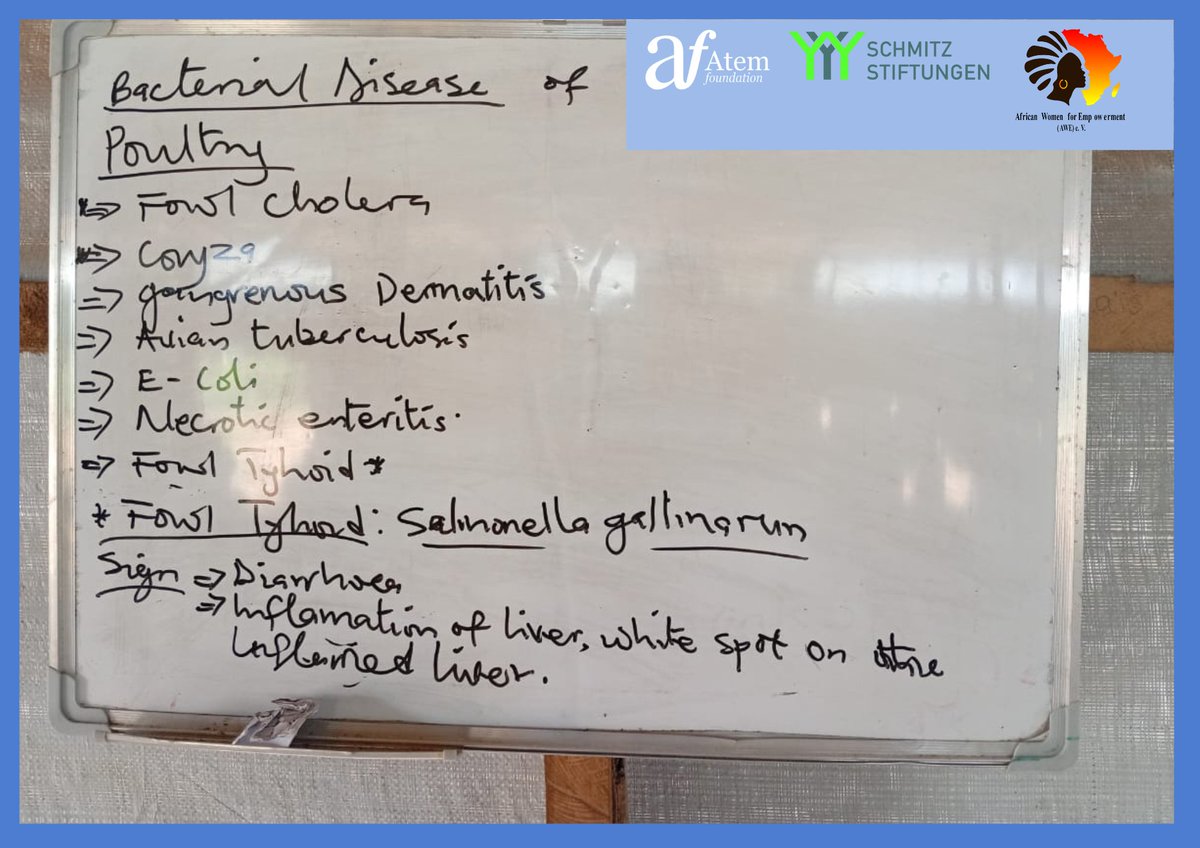 Bacterial Disease of
Poultry
⇒ Fowl cholera
⇒ Coryza
⇒ gangrenous Dermatitis
⇒ Avian tuberculosis
⇒ E-Coli
⇒ Necrotic enteritis.
⇒ Fowl Tyhoid *
* Fowl Tyhoid: Salmonella gallinarum
Sign ⇒ Diarrhoea
⇒ Inflamation of liver, white spot on the
Inflamed liver.
af Atem
foundation
SCHMITZ
STIFTUNGEN
African Women for Empowerment
(AWE) e. V.